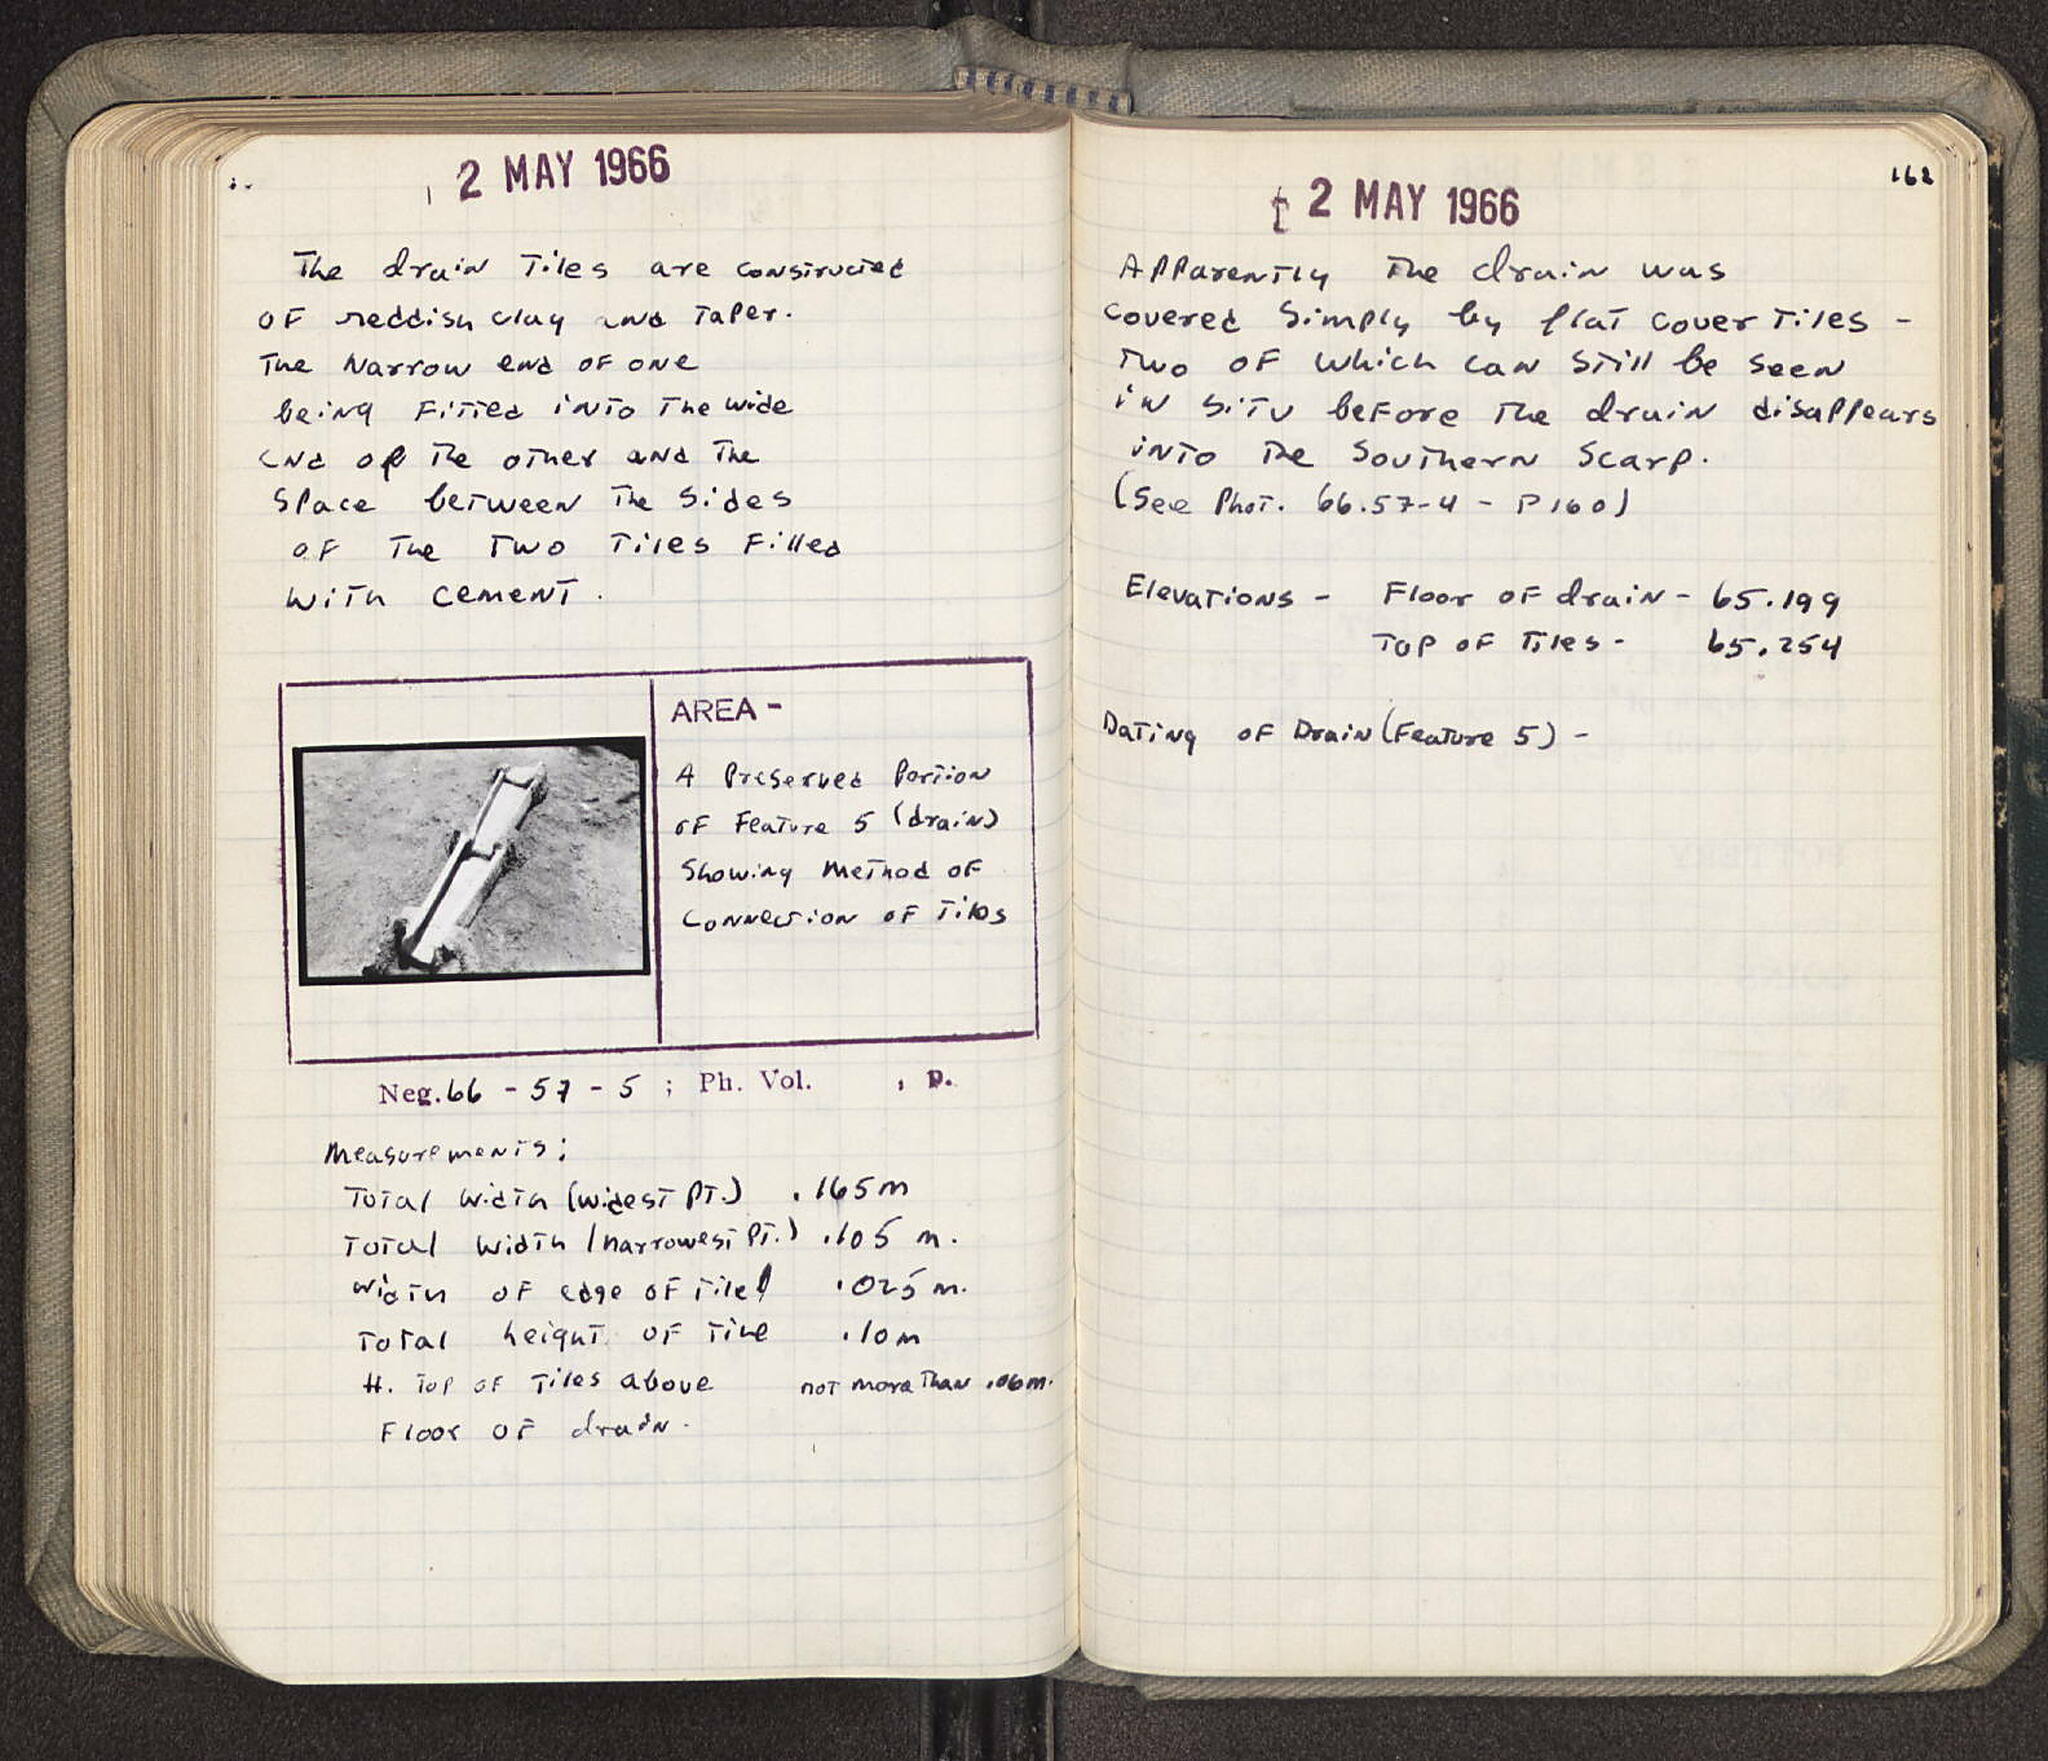 2 MAY 1966
The drain Tiles are constructed
of reddish clay and taper.
The Narrow end of one
being Fitted into the wide
end of the other and the
space between the sides
of the two Tiles Filled
with cement.
AREA -
A Preserved Portion
of Feature 5 (drain)
Showing Method of
Connection of Tiles
Neg. 66 - 57 - 5 ; Ph. Vol. , p.
Measurements:
Total width (widest pt.) .165m
Total width (narrowest pt.) .105 m.
Width of edge of tile .025 m.
Total height of tile .10m
H. top of tiles above not more than .06m.
Floor of drain.
2 MAY 1966
162
Apparently the drain was
covered simply by flat cover tiles -
two of which can still be seen
in situ before the drain disappears
into the Southern Scarp.
(See Phot. 66.57-4 - P160)
Elevations - Floor of drain - 65.199
Top of Tiles - 65.254
Dating of Drain (Feature 5) -